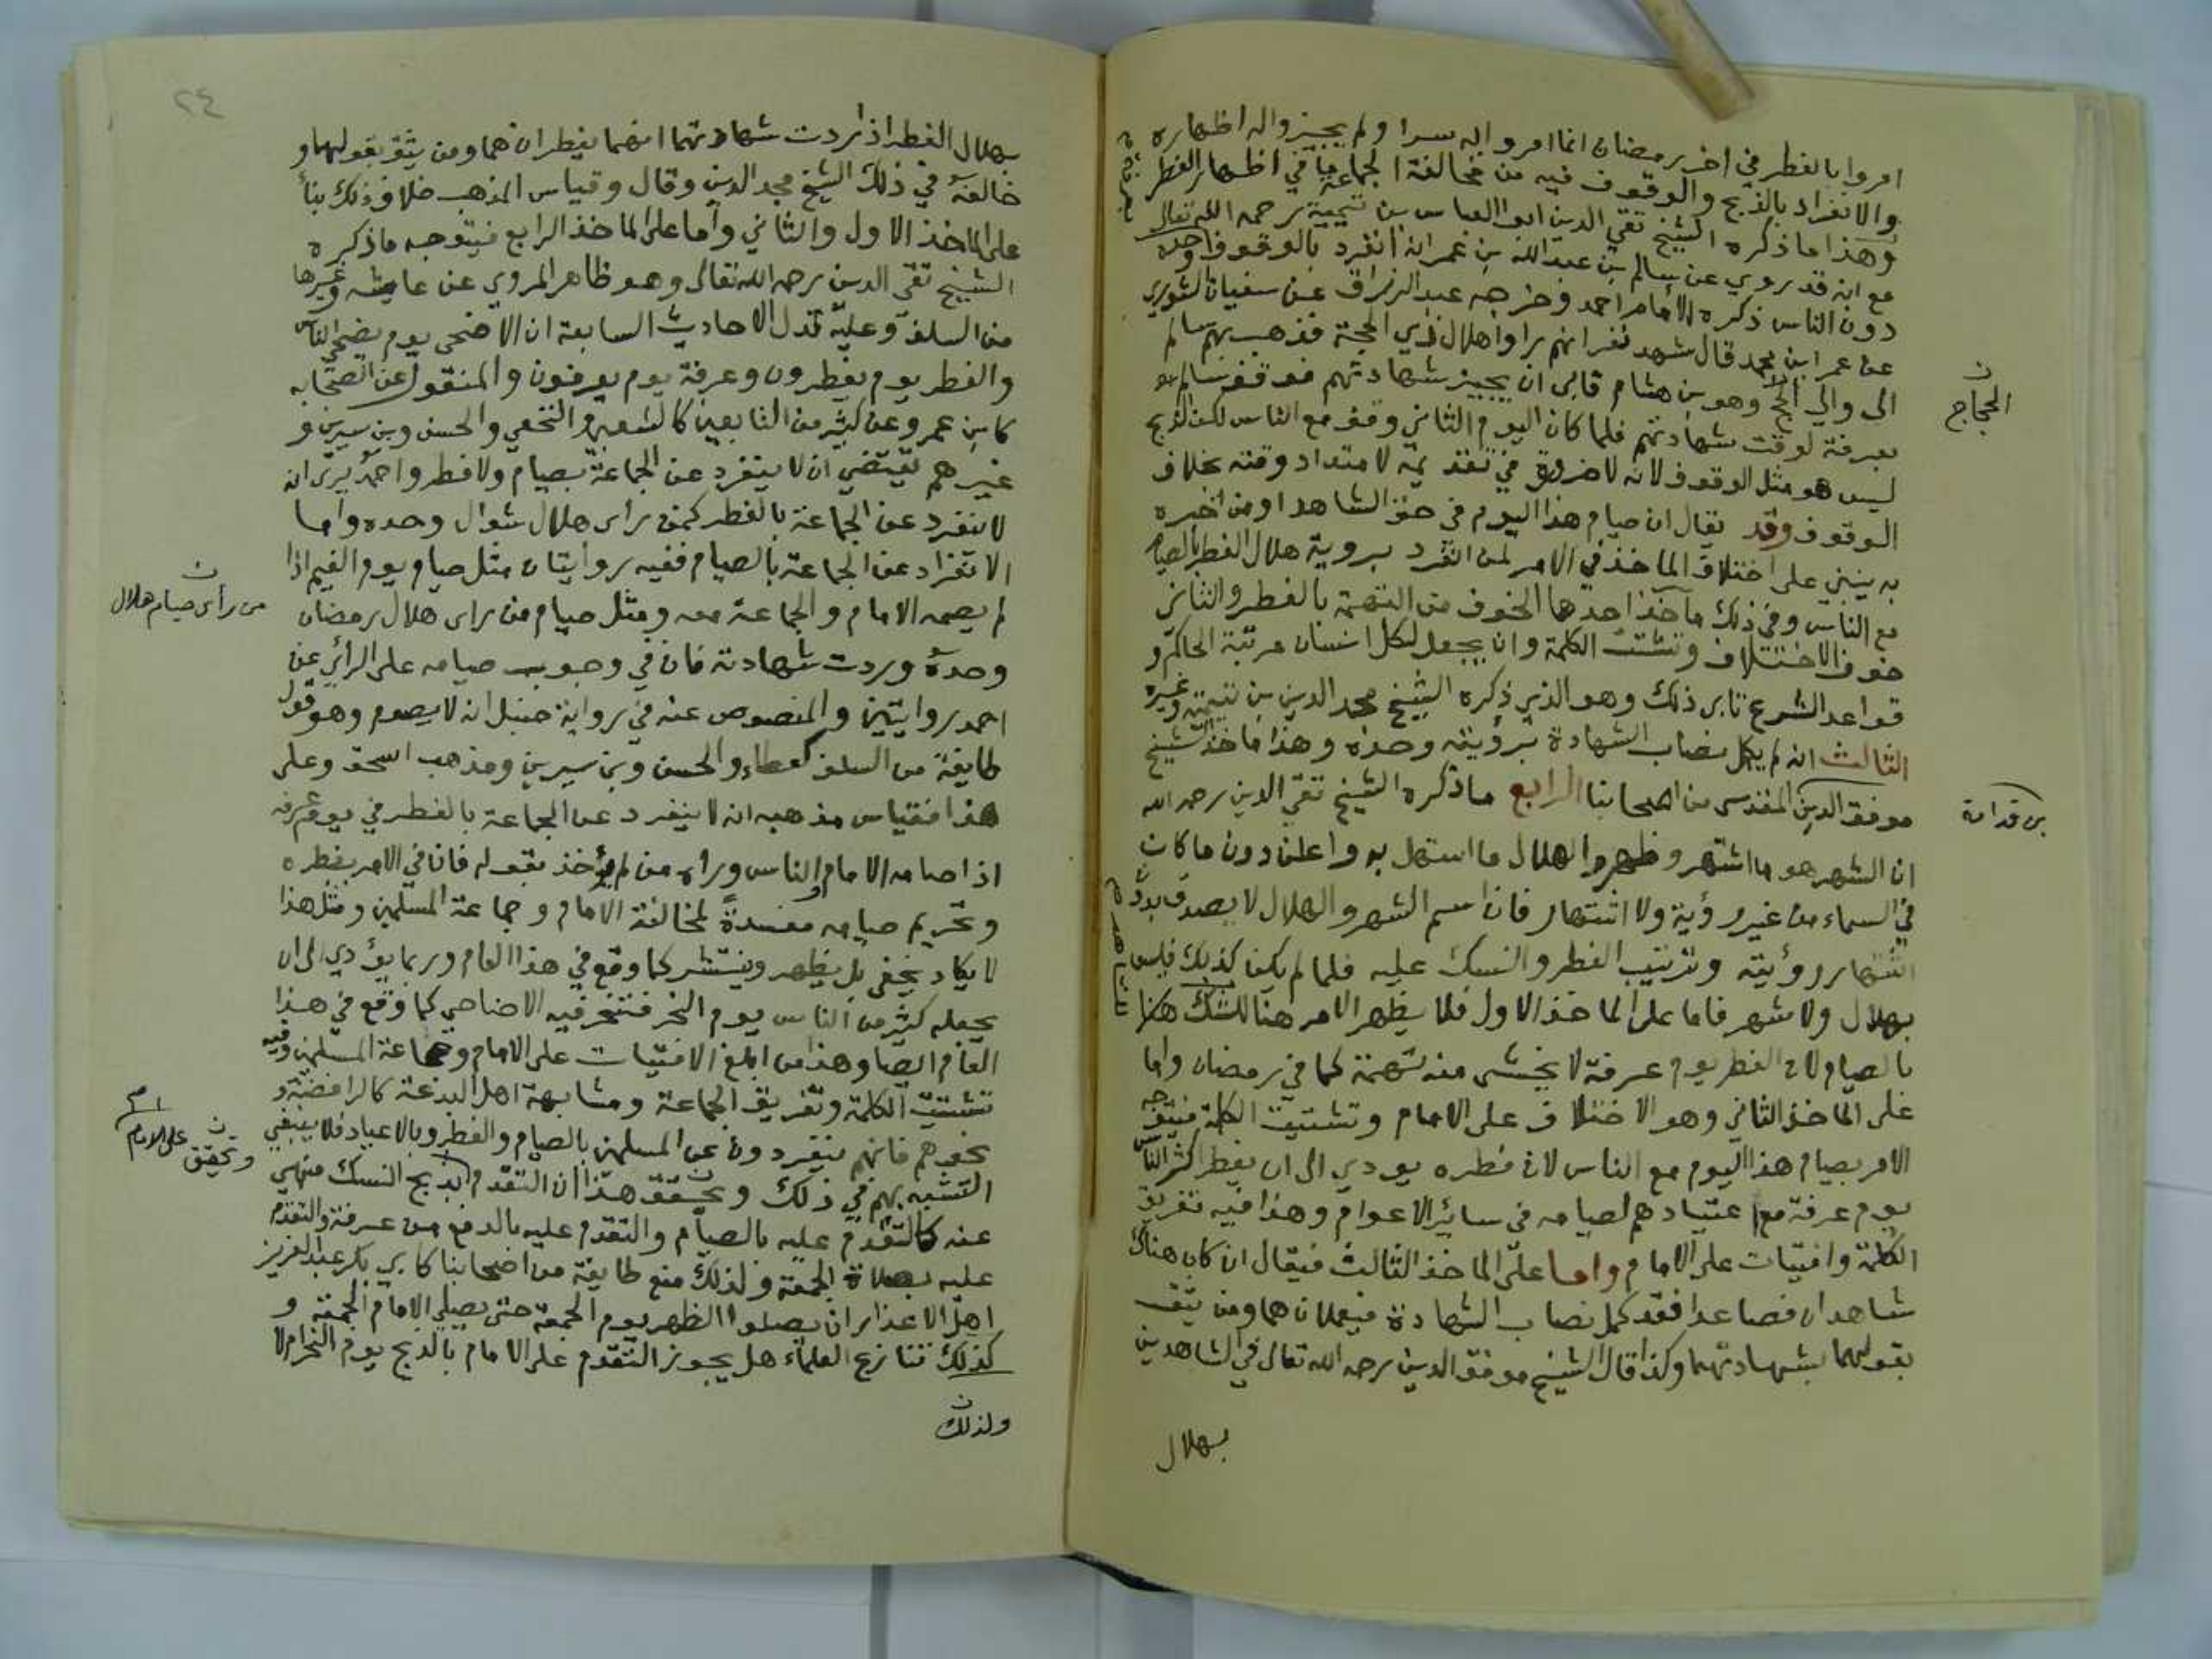 امروا بالفطر في اخر رمضان انما امروا به سرا ولم يجيزوا له اظهاره
والانفراد بالذبح والوقوف فيه من مخالفة الجماعة ما في اظهار الفطر
وهذا ما ذكره الشيخ تقي الدين ابو العباس بن تيمية رحمه الله تعالى
مع انه قد روي عن سالم بن عبد الله بن عمر انه انفرد بالوقوف وحده
دون الناس ذكره الامام احمد وخرجه عبد الرزاق عن سفيان الثوري
عن عمر ابن محمد قال شهد نفر انهم راوا هلال ذي الحجة فذهب بهم سالم
الى والي الحج وهو بن هشام فابى ان يجيز شهادتهم فوقف سالم
بعرفة لوقت شهادتهم فلما كان اليوم الثاني وقف مع الناس لكن الذبح
ليس هو مثل الوقوف لانه لا ضرورة في تقديمه لامتداد وقته بخلاف
الوقوف وقد يقال ان صيام هذا اليوم في حق الشاهد او من اخبره
به ينبني على اختلاف الماخذ في الامر لمن انفرد بروية هلال الفطر بالصيام
مع الناس وفي ذلك مآخذ احدها الخوف من التهمة بالفطر والثاني
خوف الاختلاف وتشتت الكلمة وان يجعل لكل انسان مرتبة الحاكم و
قواعد الشرع تابى ذلك وهو الذي ذكره الشيخ مجد الدين بن تيمية وغيره
الثالث انه لم يكمل نصاب الشهادة برؤيته وحده وهذا ماخذ الشيخ
موفق الدين المقدسي من اصحابنا الرابع ما ذكره الشيخ تقي الدين رحمه الله
ان الشهر هو ما اشتهر وظهر والهلال ما استهل به واعلن دون ما كان
في السماء من غير رؤية ولا اشتهار فان اسم الشهر والهلال لا يصدق بدون
اشتهار رؤيته وترتيب الفطر والنسك عليه فلما لم يكن كذلك فليس
بهلال ولا شهر فاما على الماخذ الاول فلا يظهر الامر هنا للشك هكذا
بالصيام لان الفطر يوم عرفة لا يخشى منه تهمة كما في رمضان واما
على الماخذ الثاني وهو الاختلاف على الامام وتشتيت الكلمة فيتوجه
الامر بصيام هذا اليوم مع الناس لان فطره يودي الى ان يفطر اكثر الناس
يوم عرفة مع اعتيادهم لصيامه في سائر الاعوام وهذا فيه تفريق
الكلمة وافتيات على الامام واما على الماخذ الثالث فيقال ان كان هناك
شاهدان فصاعدا فقد كمل نصاب الشهادة فيعملان هما ومن يثق
بقولهما بشهادتهما وكذا قال الشيخ موفق الدين رحمه الله تعالى في الشاهدين
بهلال
الحجاج
بن قدامة
٢٤
بهلال الفطر اذا ردت شهادتهما انهما يفطران هما ومن يثق بقولهما و
خالفه في ذلك الشيخ مجد الدين وقال وقياس المذهب خلافه وذلك بناً
على الماخذ الاول والثاني وأما على الماخذ الرابع فيتوجه ما ذكره
الشيخ تقي الدين رحمه الله تعالى وهو ظاهر المروي عن عايشه وغيرها
من السلف وعليه تدل الاحاديث السابعة ان الاضحى يوم يضحي الناس
والفطر يوم يفطرون وعرفة يوم يعرفون والمنقول عن الصحابه
كابن عمر وعن كثير من التابعين كالشعبي والنخعي والحسن وبن سيرين و
غيرهم يقتضي ان لا ينفرد عن الجماعة بصيام ولا فطر واحمد يرى انه
لا ينفرد عن الجماعة بالفطر كمن راى هلال شوال وحده واما
الانفراد عن الجماعة بالصيام ففيه روايتان مثل صيام يوم الغيم اذا
لم يصمه الامام والجماعة معه ومثل صيام من راى هلال رمضان
وحده وردت شهادته فان في وجوب صيامه على الرائي عن
احمد روايتين والمنصوص عنه في رواية حنبل انه لا يصوم وهو قول
طايفة من السلف كعطاء والحسن وبن سيرين ومذهب اسحق وعلى
هذا فقياس مذهبه انه لا ينفرد عن الجماعة بالفطر في يوم عرفه
اذا صامه الامام والناس وراه من لم يؤخذ بقوله فان في الامر بفطره
وتحريم صيامه مفسدةً لمخالفة الامام وجماعة المسلمين ومثل هذا
لا يكاد يخفى بل يظهر وينتشر كما وقع في هذا العام وربما يؤدي الى ان
يجعله كثير من الناس يوم النحر فتنحر فيه الاضاحي كما وقع في هذا
العام ايضا وهذا من ابلغ الافتيات على الامام وجماعة المسلمين وفيه
تشتيت الكلمة وتفريق الجماعة ومشابهة اهل البدعة كالرافضة و
نحوهم فانهم ينفردون عن المسلمين بالصيام والفطر وبالاعياد فلا ينبغي
التشبه بهم في ذلك ويحقق هذا ان التقدم بذبح النسك منهي
عنه كالتقدم عليه بالصيام والتقدم عليه بالدفع من عرفة والتقدم
عليه بصلاة الجمعة ولذلك منع طايفة من اصحابنا كابي بكر عبد العزيز
اهل الاعذار ان يصلوا الظهر يوم الجمعة حتى يصلي الامام الجمعة و
كذلك تنازع العلماء هل يجوز التقدم على الامام بالذبح يوم النحر ام لا
ولذلك
من رأى صيام هلال
وتحقيق
على الامام